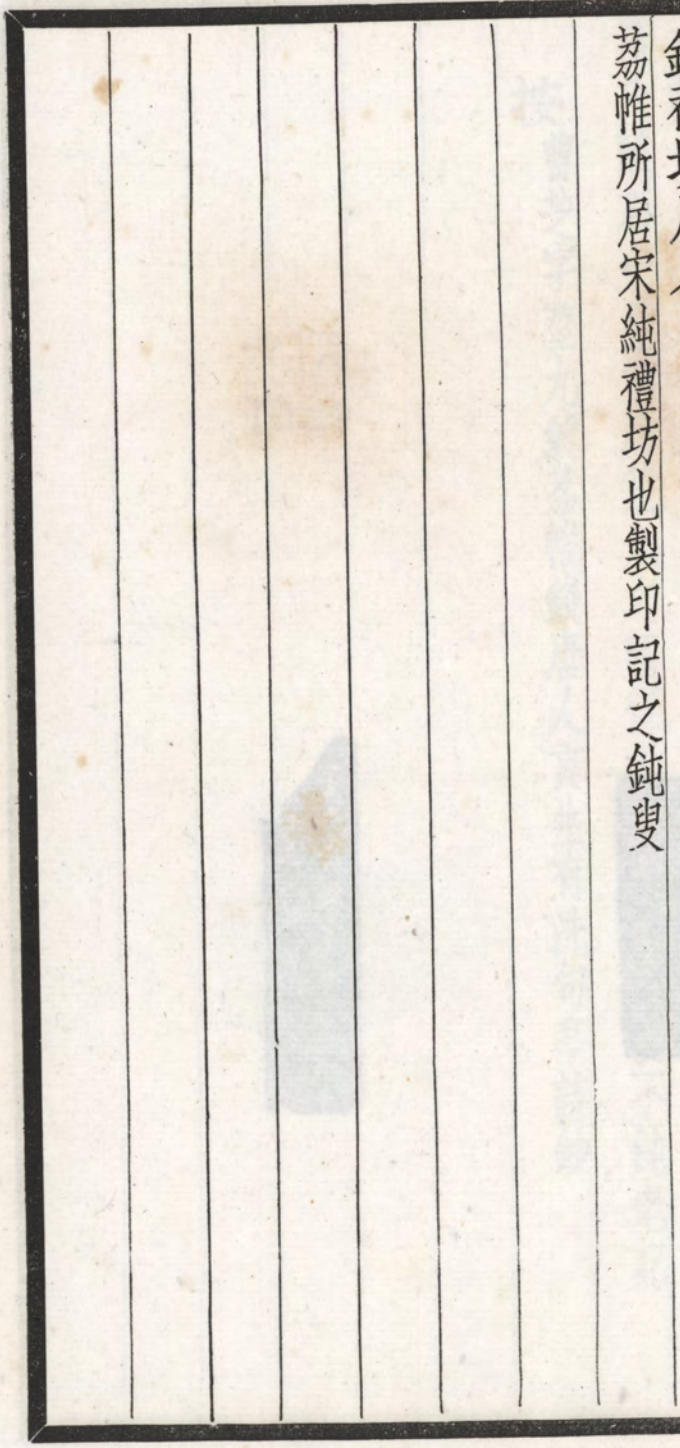 茘帷所居宋純禮坊也製印記之鈍叟